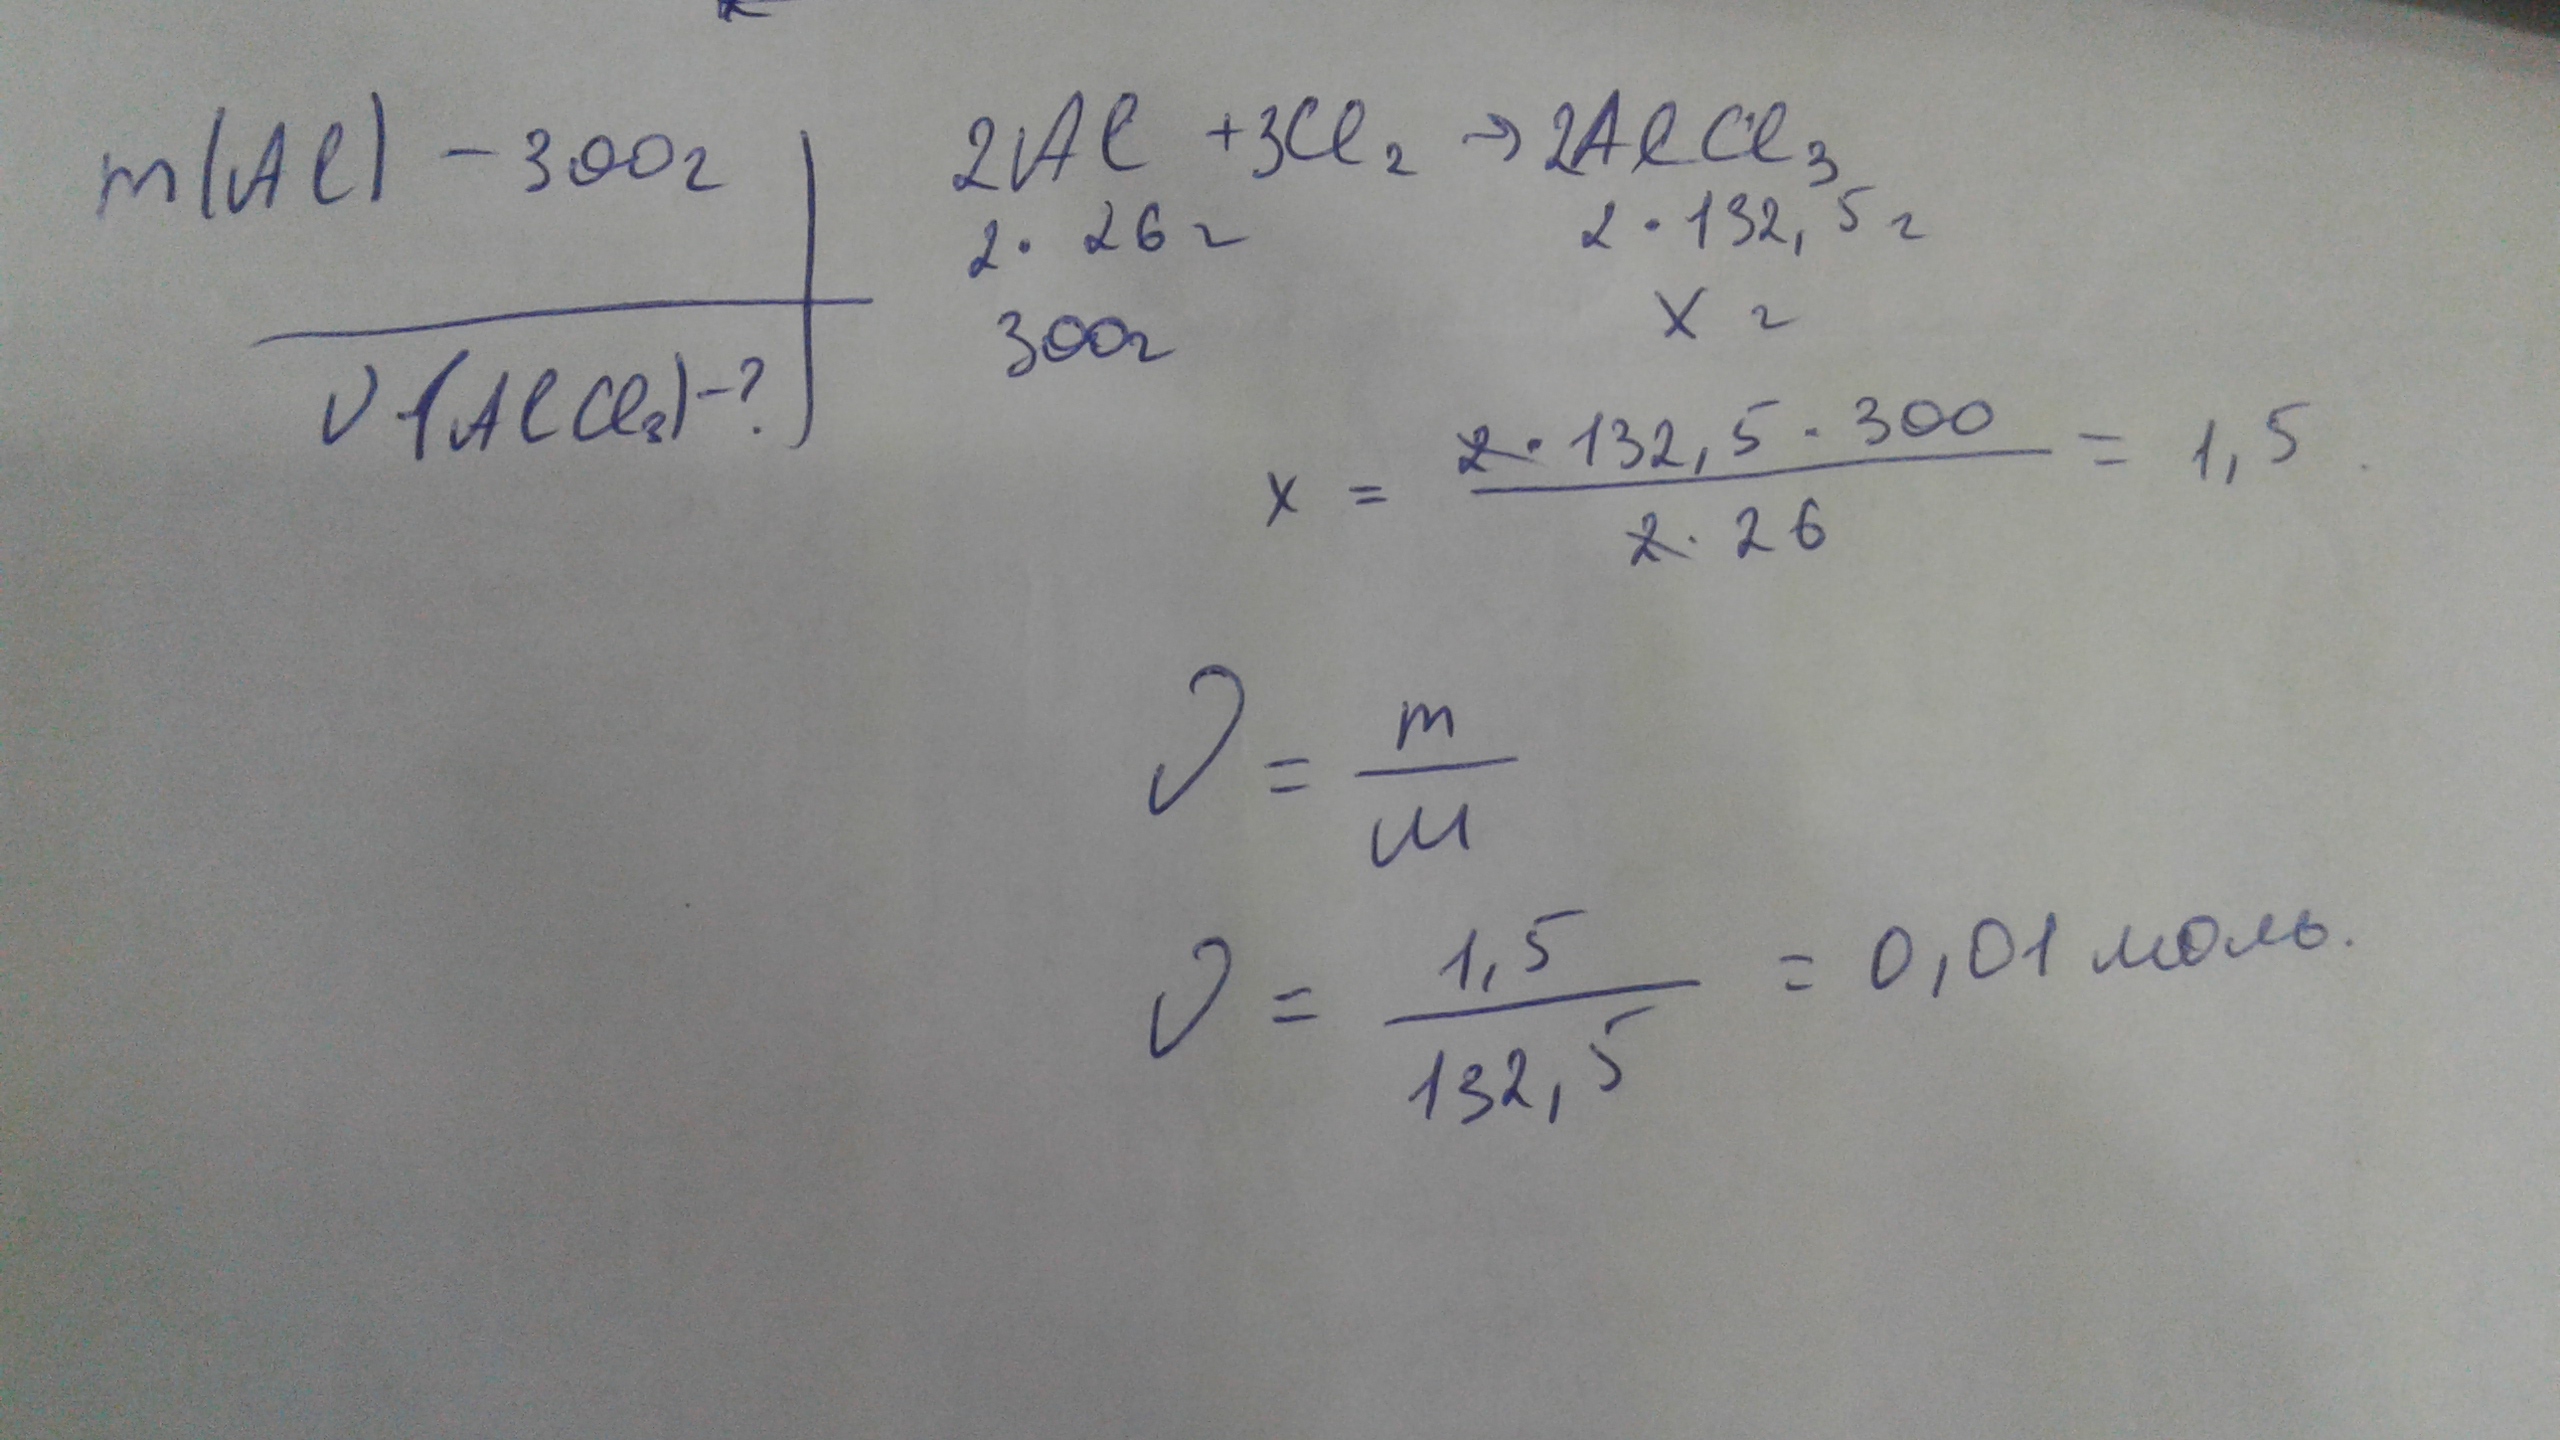 m(Al) - 300г
ν (AlCl₃) - ?
2Al + 3Cl₂ → 2AlCl₃
2 · 26г 2 · 132,5г
300г x г
x = 2 · 132,5 · 300 / 2 · 26 = 1,5
ν = m / M
ν = 1,5 / 132,5 = 0,01 моль.